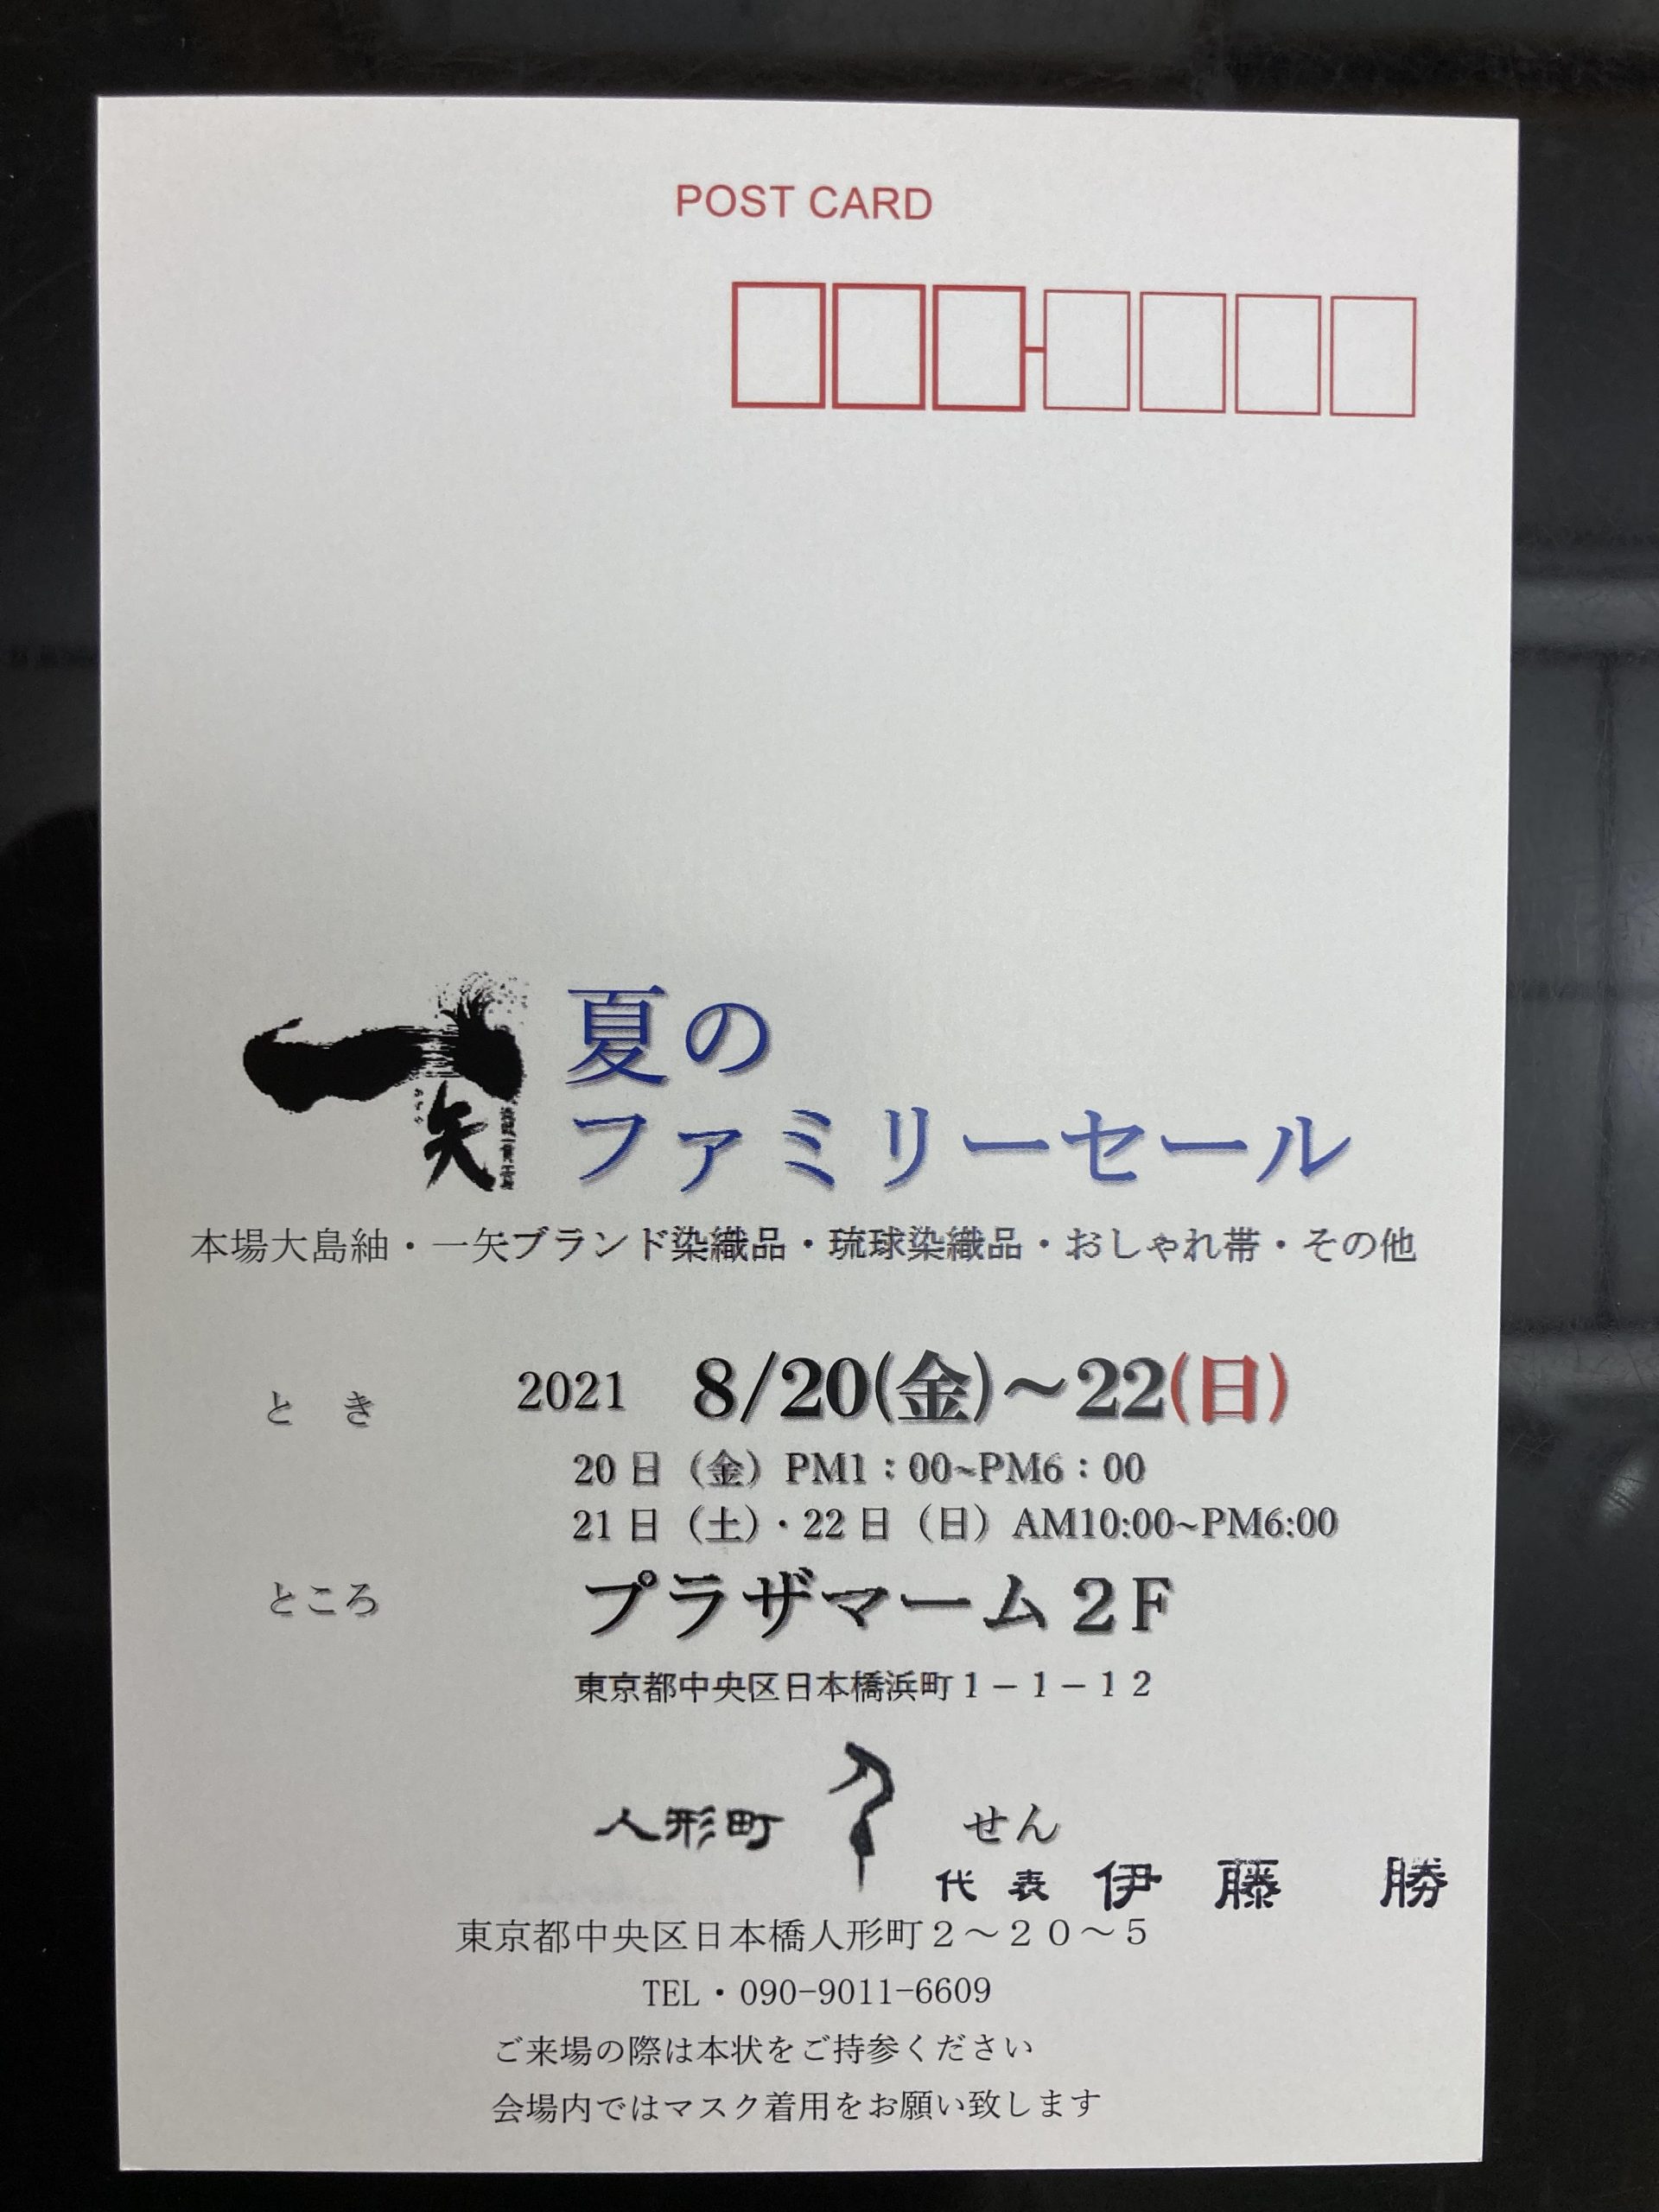 POST CARD
一矢
夏の
ファミリーセール
本場大島紬・一矢ブランド染織品・琉球染織品・おしゃれ帯・その他
とき 2021 8/20(金)～22(日)
20日（金）PM1：00~PM6：00
21日（土）・22日（日）AM10:00~PM6:00
ところ プラザマーム２F
東京都中央区日本橋浜町１－１－１２
人形町 せん
代表 伊藤 勝
東京都中央区日本橋人形町２～２０～５
TEL・090-9011-6609
ご来場の際は本状をご持参ください
会場内ではマスク着用をお願い致します